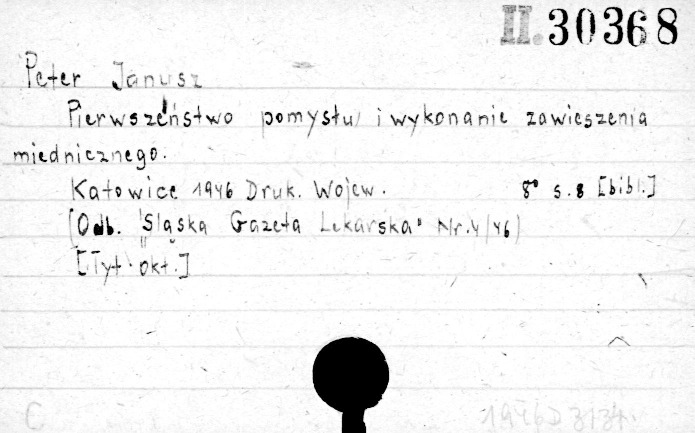 II. 30368
Peter Janusz
Pierwszeństwo pomysłu i wykonanie zawieszenia
miednicznego.
Katowice 1946 Druk. Wojew. 8° s. 8 [bibl.]
(Odb. "Śląska Gazeta Lekarska" Nr. 4/46)
[Tyt. okł.]
C
1946 D